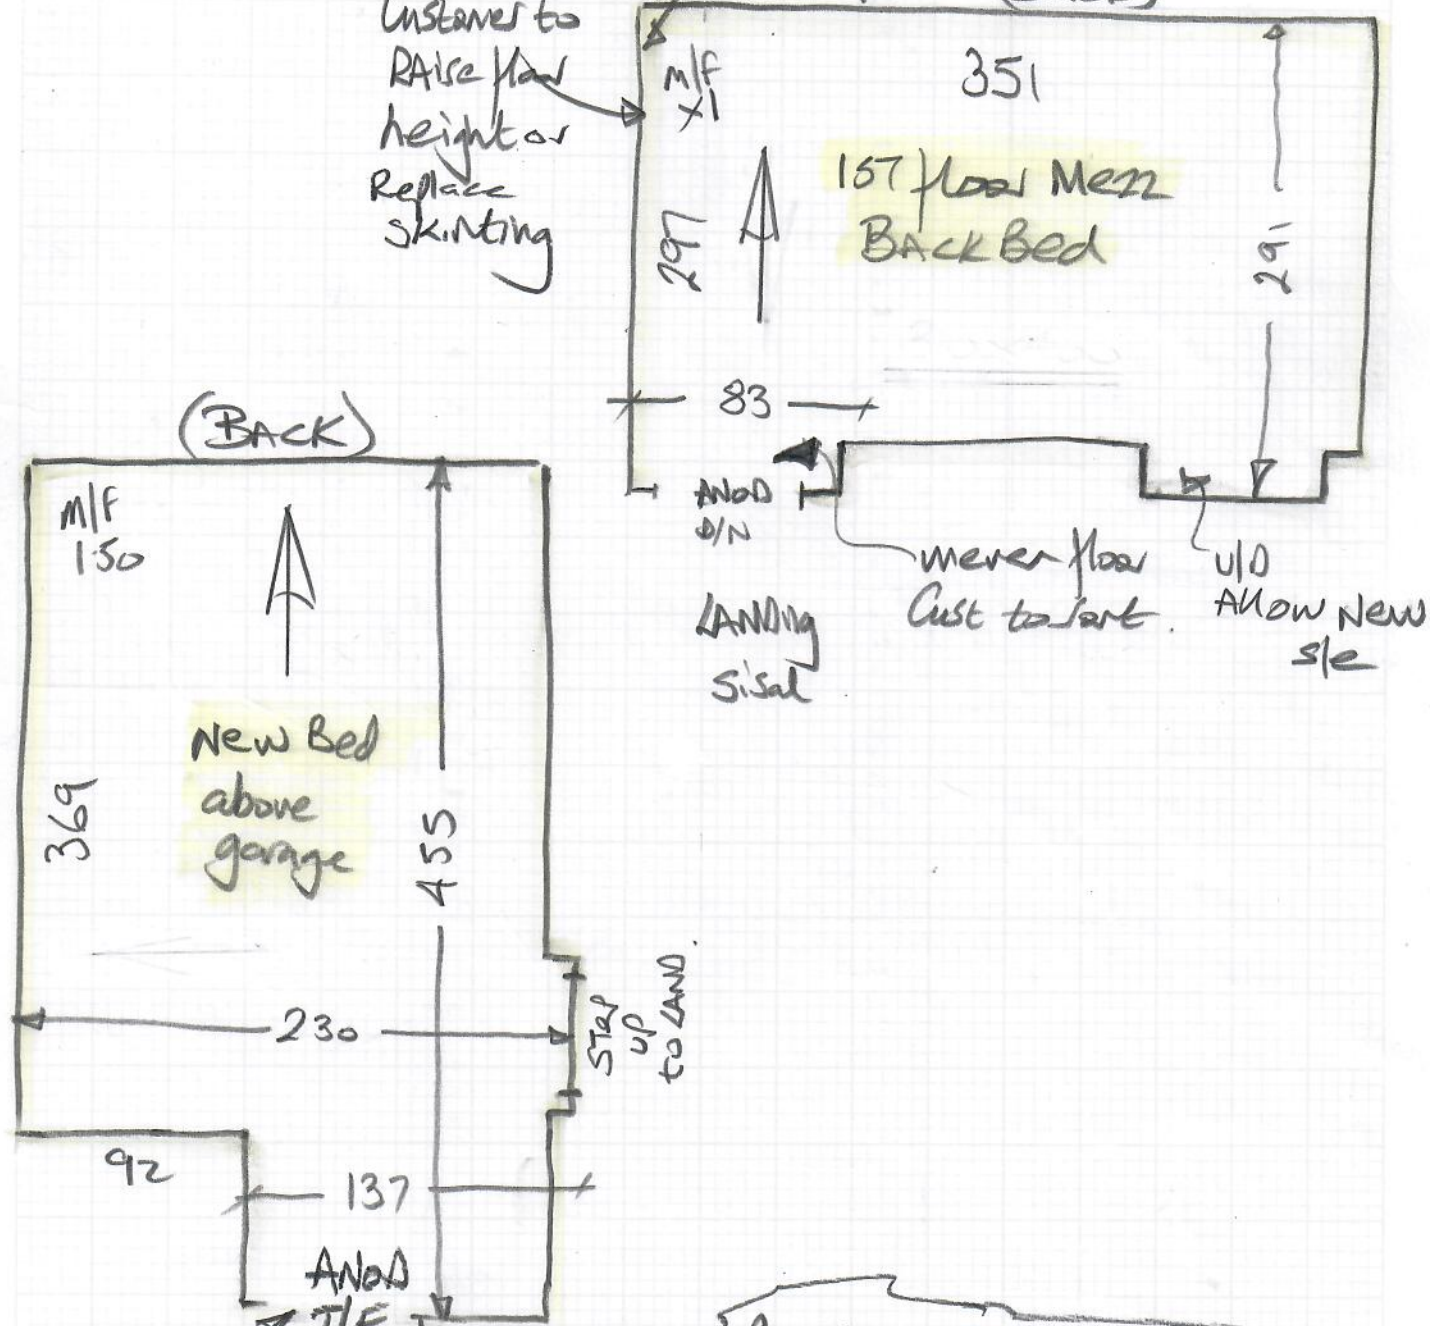 Customer to
RAise floor
height or
Replace
skirting
M/F
x1
351
1ST floor Mezz
BACK Bed
297
291
83
ANOD
D/N
LANDing
Sisal
floor
Cust to sort.
U/D
Allow New
s/e
(BACK)
M/F
1.50
New Bed
above
garage
369
455
230
STEP
UP
to LAND.
92
137
ANOD